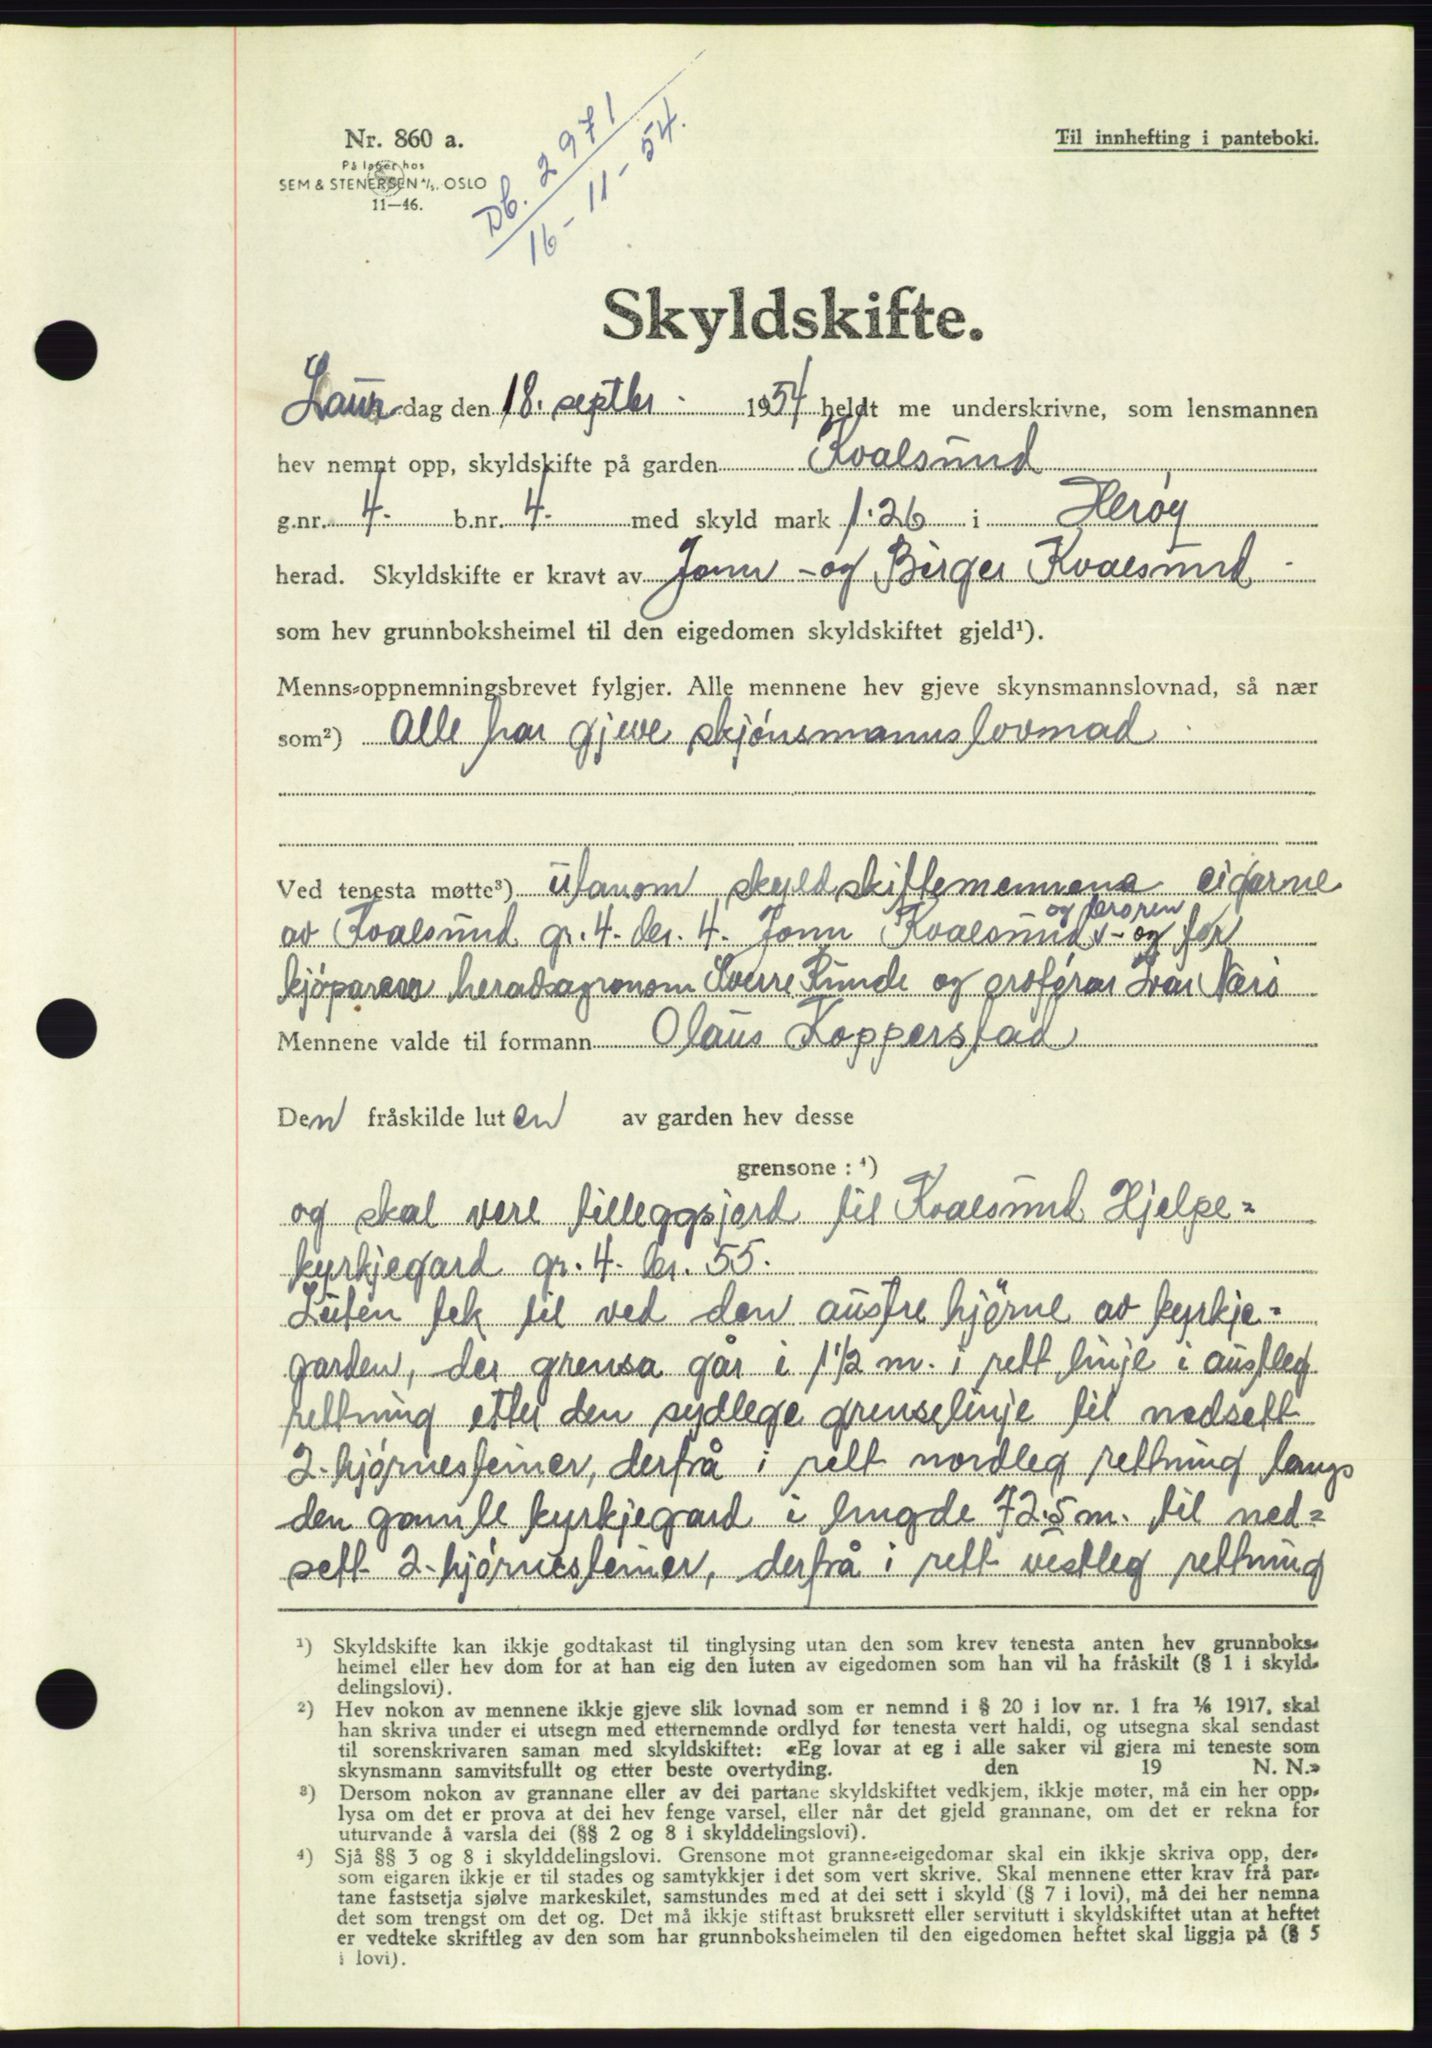 Nr. 860 a.
På lager hos
SEM & STENERSEN A/S, OSLO
11—46.
Db. 2971
16-11-54.
Til innhefting i panteboki.
Skyldskifte.
Laur-dag den 18. septbr. 1954 heldt me underskrivne, som lensmannen
hev nemnt opp, skyldskifte på garden Kvalsund
g.nr. 4- b.nr. 4- med skyld mark 1.26 i Herøy
herad. Skyldskifte er kravt av Jonn - og Birger Kvalsund
som hev grunnboksheimel til den eigedomen skyldskiftet gjeld¹).
Menns-oppnemningsbrevet fylgjer. Alle mennene hev gjeve skynsmannslovnad, så nær
som²) Alle har gjeve skjønsmannslovnad
Ved tenesta møtte³) utanom skyldskiftemennene eigarne
og broren
av Kvalsund gr. 4- br. 4. Jonn Kvalsund - og for
kjøparen heradsagronom Sverre Runde og Ivar Nærø
Mennene valde til formann Olaus Kopperstad
Den fråskilde luten av garden hev desse
grensone : ⁴)
og skal vere tilleggsjord til Kvalsund Hjelpe=
kyrkjegard gr. 4- br. 55.
Luten tek til ved den austre hjörne av kyrkje=
garden, der grensa går i 1½ m. i rett linje i austleg
rettning etter den sydlege grenselinje til nedsett
2-hjørnesteiner, derfrå i rett nordleg rettning langs
den gamle kyrkjegard i lengde 72.5 m. til ned=
sett 2-hjørnesteiner, derfrå i rett vestleg rettning
¹) Skyldskifte kan ikkje godtakast til tinglysing utan den som krev tenesta anten hev grunnboks-
heimel eller hev dom for at han eig den luten av eigedomen som han vil ha fråskilt (§ 1 i skyld-
delingslovi).
²) Hev nokon av mennene ikkje gjeve slik lovnad som er nemnd i § 20 i lov nr. 1 fra ⅛ 1917, skal
han skriva under ei utsegn med etternemnde ordlyd før tenesta vert haldi, og utsegna skal sendast
til sorenskrivaren saman med skyldskiftet: «Eg lovar at eg i alle saker vil gjera mi teneste som
skynsmann samvitsfullt og etter beste overtyding. den 19 N. N.»
³) Dersom nokon av grannane eller av dei partane skyldskiftet vedkjem, ikkje møter, må ein her opp-
lysa om det er prova at dei hev fenge varsel, eller når det gjeld grannane, om det er rekna for
uturvande å varsla dei (§§ 2 og 8 i skylddelingslovi).
⁴) Sjå §§ 3 og 8 i skylddelingslovi. Grensone mot granne-eigedomar skal ein ikkje skriva opp, der-
som eigaren ikkje er til stades og samtykkjer i det som vert skrive. Skal mennene etter krav frå par-
tane fastsetja sjølve markeskilet, samstundes med at dei sett i skyld (§ 7 i lovi), må dei her nemna
det som trengst om det og. Det må ikkje stiftast bruksrett eller servitutt i skyldskiftet utan at heftet
er vedteke skriftleg av den som har grunnboksheimelen til den eigedomen heftet skal liggja på (§ 5
i lovi).